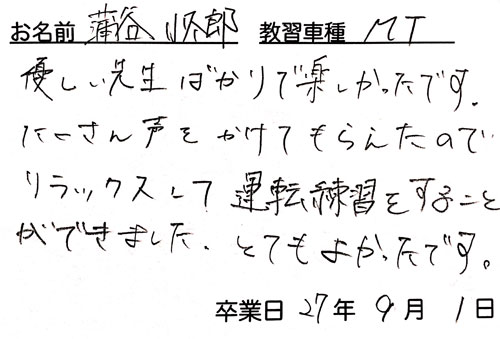 お名前 蒲谷 郎 教習車種 MT
優しい先生ばかりで楽しかったです。
たくさん声をかけてもらえたので
リラックスして運転練習をすること
ができました。とてもよかったです。
卒業日 27年 9月 1日